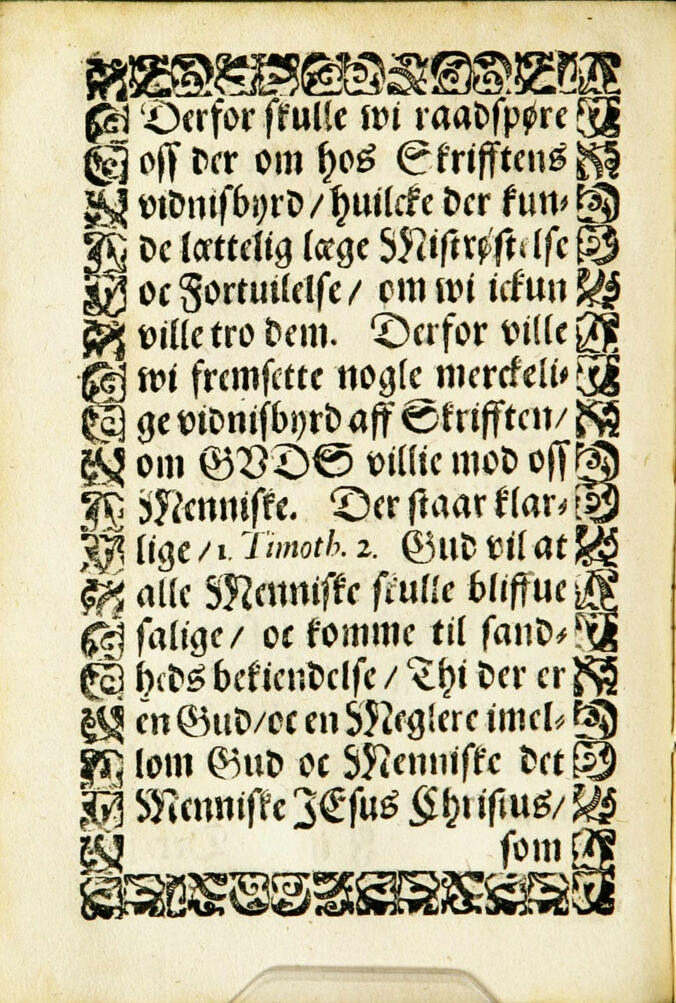 Derfor skulle wi raadspøre
oss der om hos Skrifftens
vidnisbyrd / huilcke der kun-
de lættelig læge Mistrøstelse
oc Fortuilelse / om wi ickun
ville tro dem. Derfor ville
wi fremsette nogle merckeli-
ge vidnisbyrd aff Skrifften /
om GVDS villie mod oss
Menniske. Der staar klar-
lige / 1. Timoth. 2. Gud vil at
alle Menniske skulle bliffue
salige / oc komme til sand-
heds bekiendelse / Thi der er
en Gud / oc en Meglere imel-
lom Gud oc Menniske det
Menniske JEsus Christus /
som